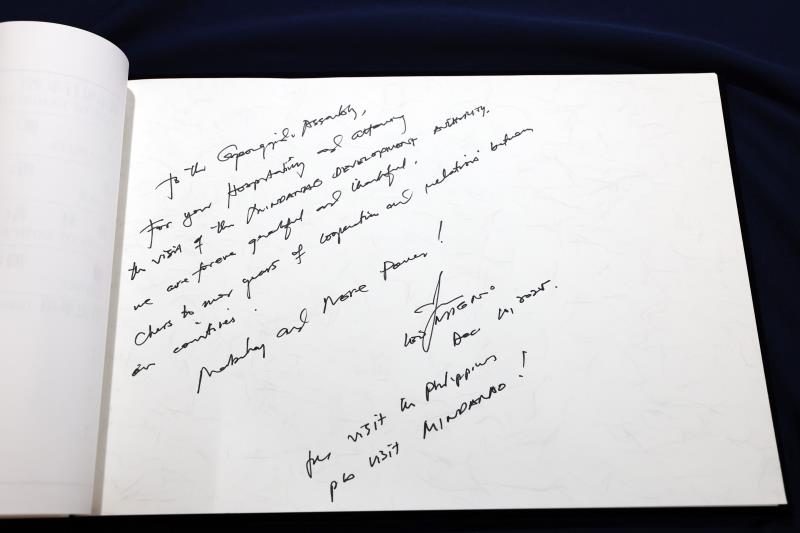 To the Gyeonggi-do Assembly,
For your Hospitality and attending
the visit of the MINDANAO DEVELOPMENT AUTHORITY.
we are forever grateful and thankful.
Cheers to more years of cooperation and relations between
our countries.
Mabuhay and More Power!
Leo
Dec 2025.
visit the Philippines
pls visit MINDANAO!